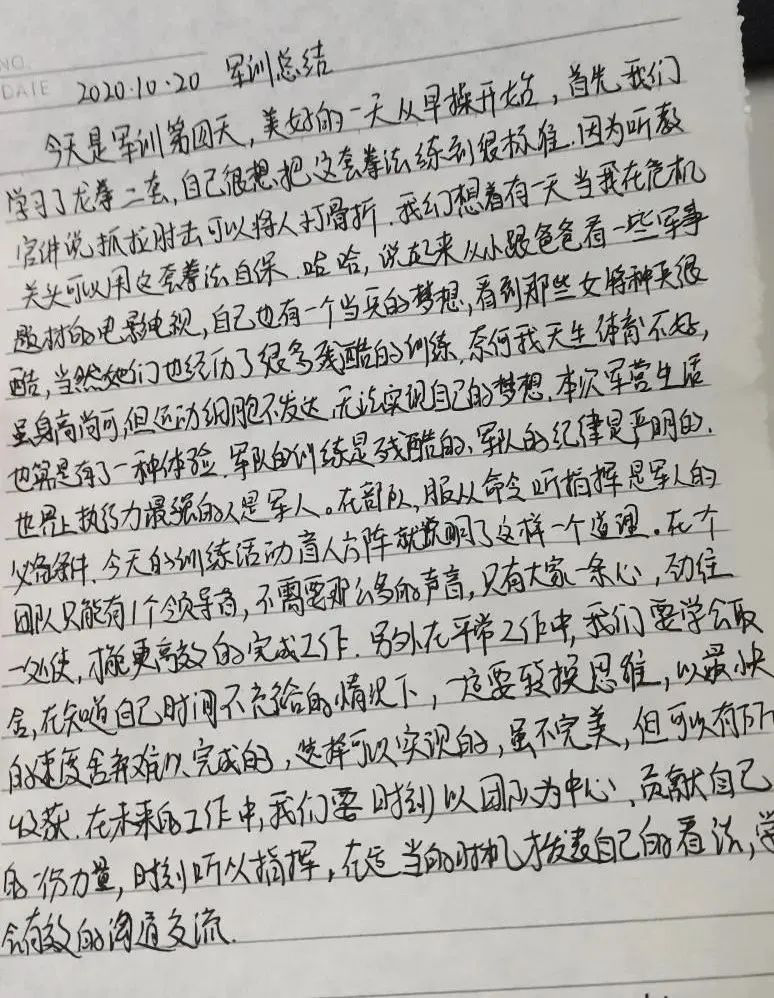 NO.
DATE 2020.10.20 军训总结
今天是军训第四天，美好的一天从早操开始，首先我们
学习了龙拳二套，自己很想把这套拳法练到很标准.因为听教
官讲说抓拉肘击可以将人打骨折.我幻想着有一天当我在危机
关头可以用这套拳法自保.哈哈，说起来从小跟爸爸看一些军事
题材的电影电视，自己也有一个当兵的梦想，看到那些女特种兵很
酷，当然她们也经历了很多残酷的训练.奈何我天生体育不好，
虽身高尚可，但运动细胞不发达，无法实现自己的梦想.本次军营生活
也算是有了一种体验.军队的训练是残酷的、军队的纪律是严明的.
世界上执行力最强的人是军人。在部队，服从命令听指挥是军人的
必备条件.今天的训练活动盲人方阵就说明了这样一个道理。在个
团队只能有1个领导者，不需要那么多的声音，只有大家一条心，劲往
一处使，才能更高效的完成工作.另外在平常工作中，我们要学会取
舍，在知道自己时间不充裕的情况下，一定要转换思维，以最快
的速度舍弃难以完成的，选择可以实现的，虽不完美，但可以有所
收获.在未来的工作中，我们要时刻以团队为中心、贡献自己
的一份力量，时刻听从指挥，在适当的时机才发表自己的看法，学
会有效的沟通交流.